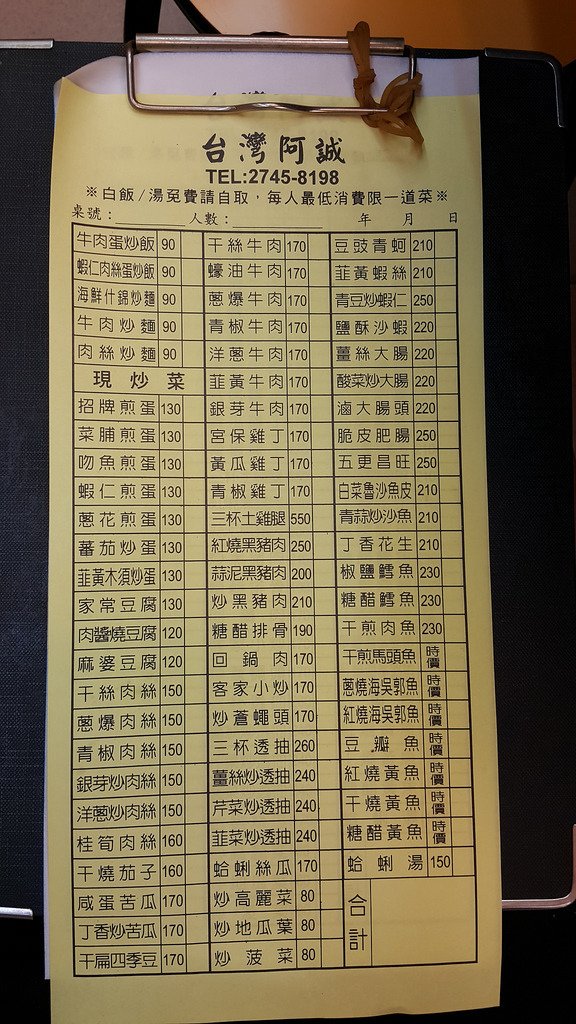 台灣阿誠
TEL:2745-8198
※白飯/湯免費請自取，每人最低消費限一道菜※
桌號：________ 人數：____________ 年 月 日
牛肉蛋炒飯 90
蝦仁肉絲蛋炒飯 90
海鮮什錦炒麵 90
牛肉炒麵 90
肉絲炒麵 90
現炒菜
招牌煎蛋 130
菜脯煎蛋 130
吻魚煎蛋 130
蝦仁煎蛋 130
蔥花煎蛋 130
蕃茄炒蛋 130
韮黃木須炒蛋 130
家常豆腐 130
肉醬燒豆腐 120
麻婆豆腐 120
干絲肉絲 150
蔥爆肉絲 150
青椒肉絲 150
銀芽炒肉絲 150
洋蔥炒肉絲 150
桂筍肉絲 160
干燒茄子 160
咸蛋苦瓜 170
丁香炒苦瓜 170
干扁四季豆 170
干絲牛肉 170
蠔油牛肉 170
蔥爆牛肉 170
青椒牛肉 170
洋蔥牛肉 170
韮黃牛肉 170
銀芽牛肉 170
宮保雞丁 170
黃瓜雞丁 170
青椒雞丁 170
三杯土雞腿 550
紅燒黑豬肉 250
蒜泥黑豬肉 200
炒黑豬肉 210
糖醋排骨 190
回鍋肉 170
客家小炒 170
炒蒼蠅頭 170
三杯透抽 260
薑絲炒透抽 240
芹菜炒透抽 240
韮菜炒透抽 240
蛤蜊絲瓜 170
炒高麗菜 80
炒地瓜葉 80
炒菠菜 80
豆豉青蚵 210
韮黃蝦絲 210
青豆炒蝦仁 250
鹽酥沙蝦 220
薑絲大腸 220
酸菜炒大腸 220
滷大腸頭 220
脆皮肥腸 250
五更昌旺 250
白菜魯沙魚皮 210
青蒜炒沙魚 210
丁香花生 210
椒鹽鱈魚 230
糖醋鱈魚 230
干煎肉魚 230
干煎馬頭魚 時價
蔥燒海吳郭魚 時價
紅燒海吳郭魚 時價
豆瓣魚 時價
紅燒黃魚 時價
干燒黃魚 時價
糖醋黃魚 時價
蛤蜊湯 150
合計